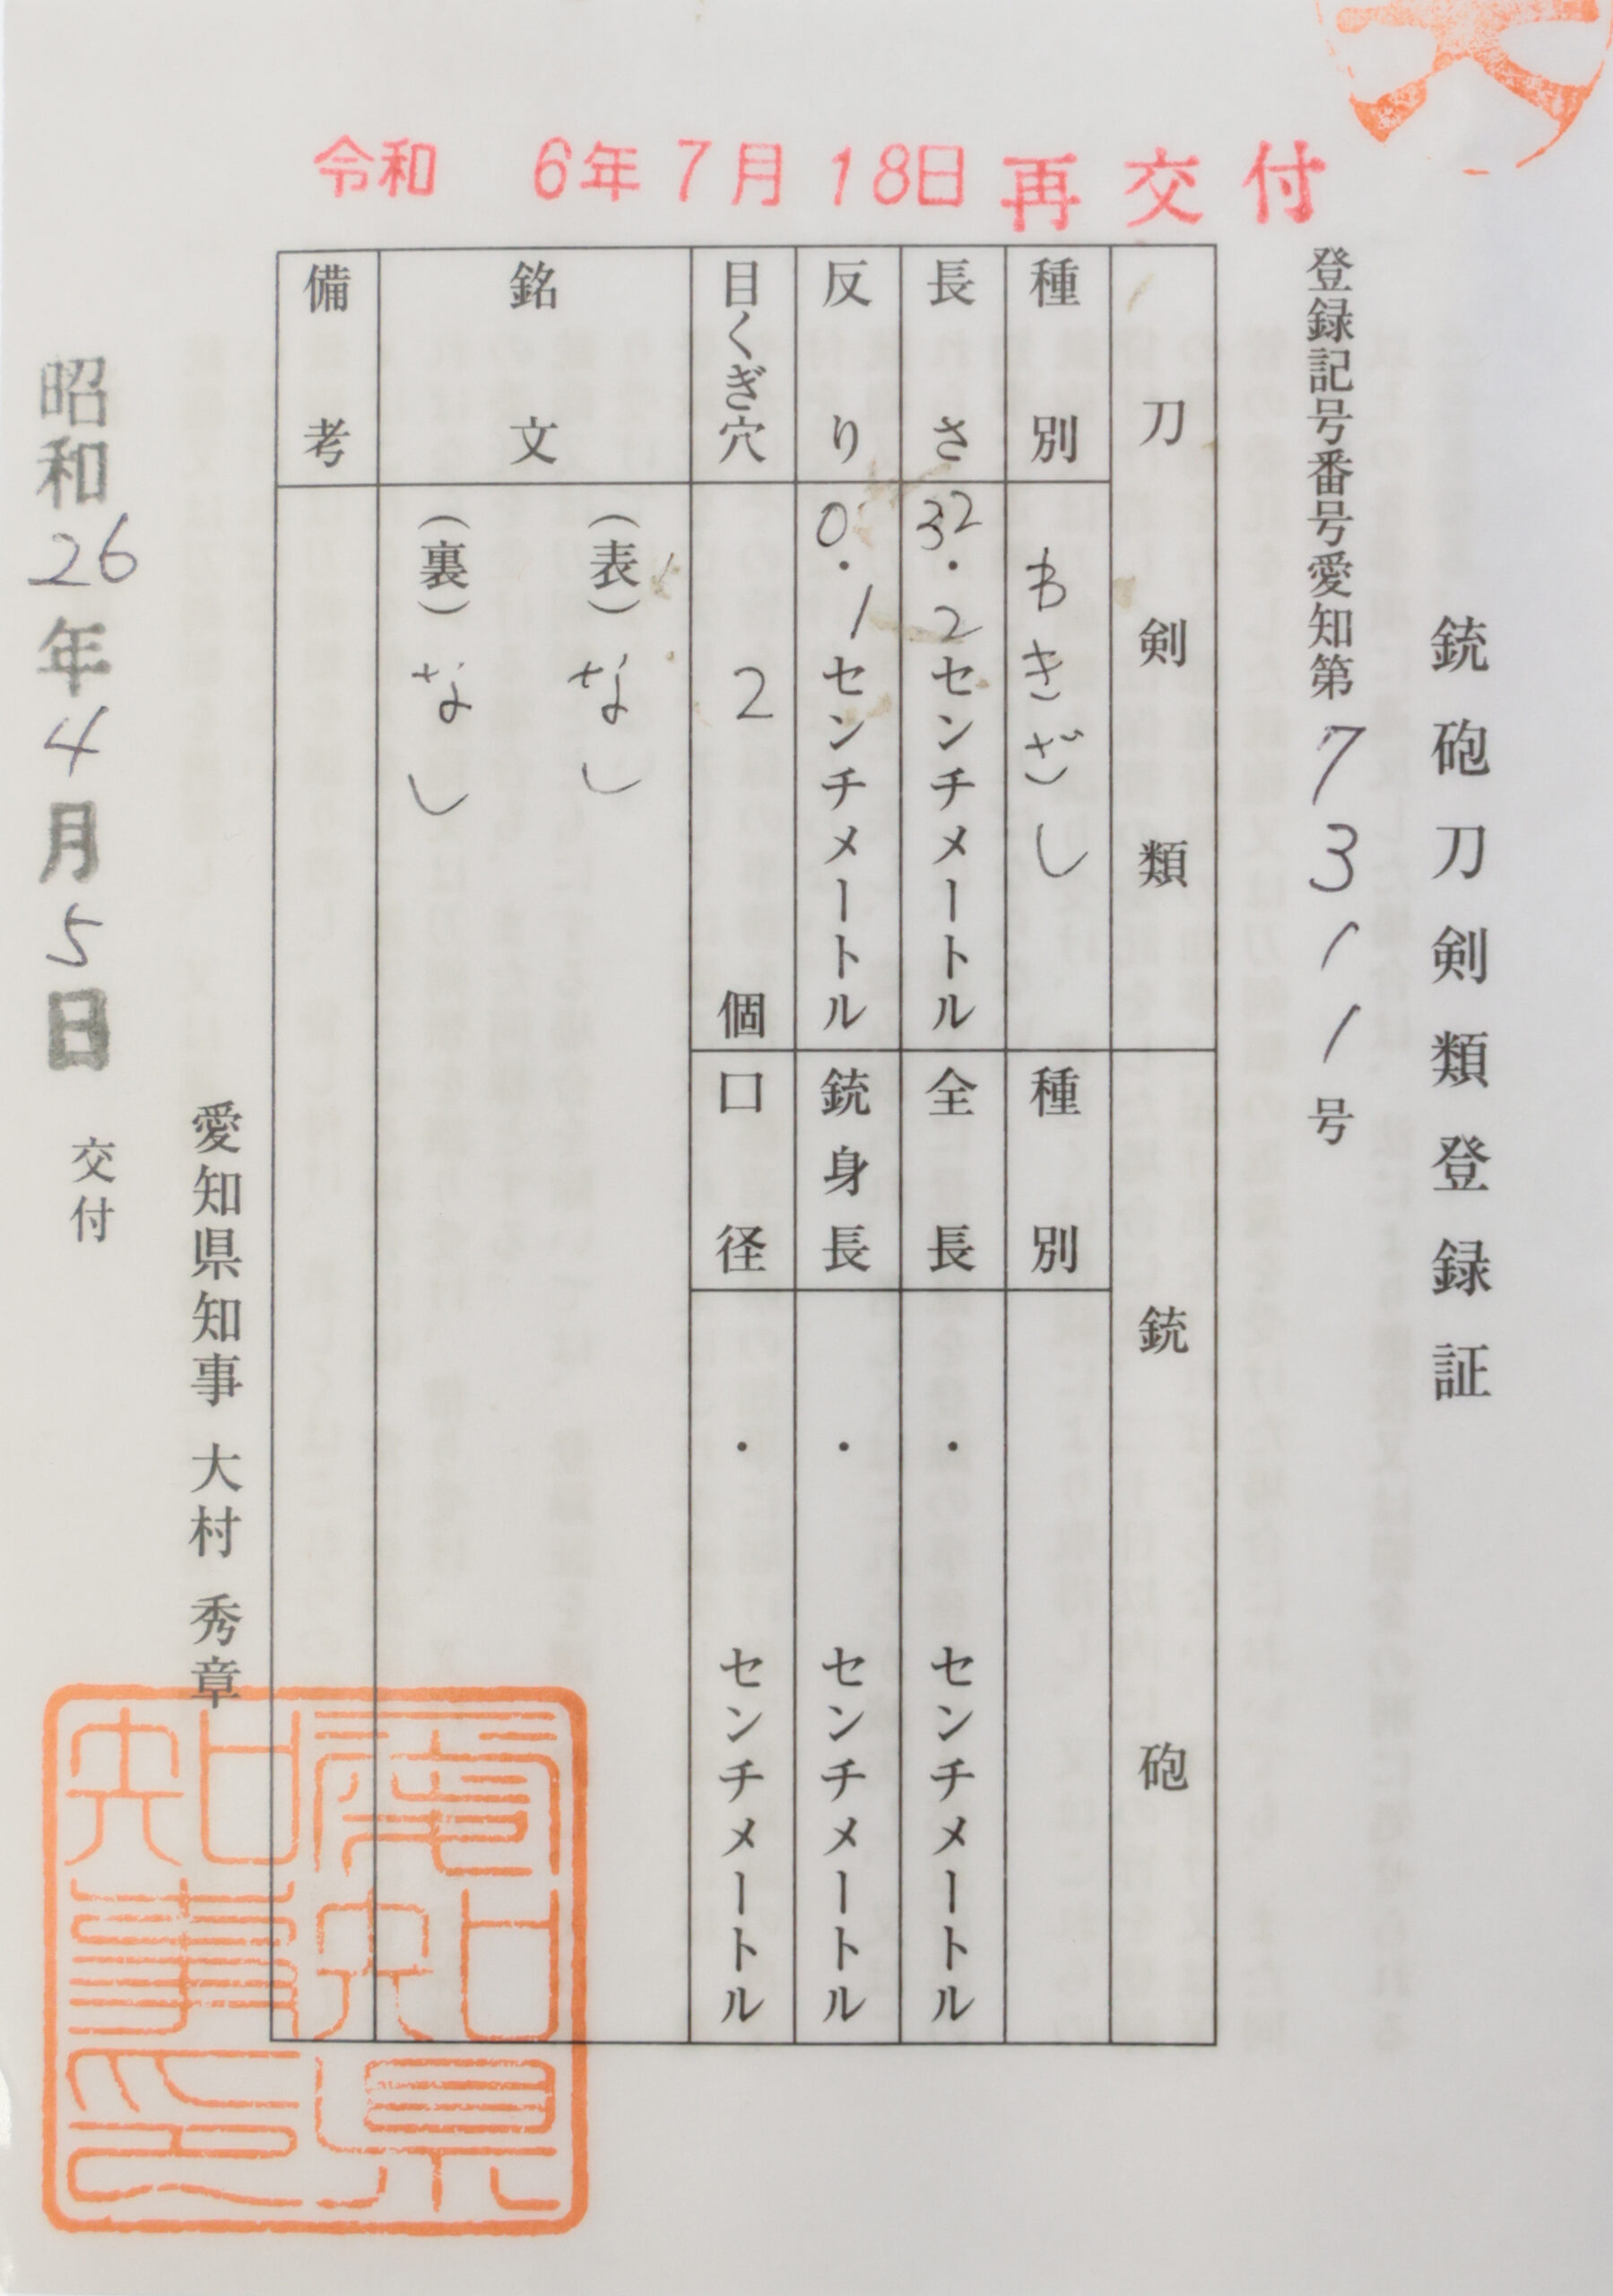 令和 6年7月18日再交付
銃砲刀剣類登録証
登録記号番号愛知第7311号
刀剣類
種別 わきざし
長さ 32.2センチメートル
反り 0.1センチメートル
目くぎ穴 2個
銘文
(表)なし
(裏)なし
備考
銃砲
種別
全長 ・ センチメートル
銃身長 ・ センチメートル
口径 ・ センチメートル
愛知県知事 大村 秀章
愛知県知事印
昭和26年4月5日 交付